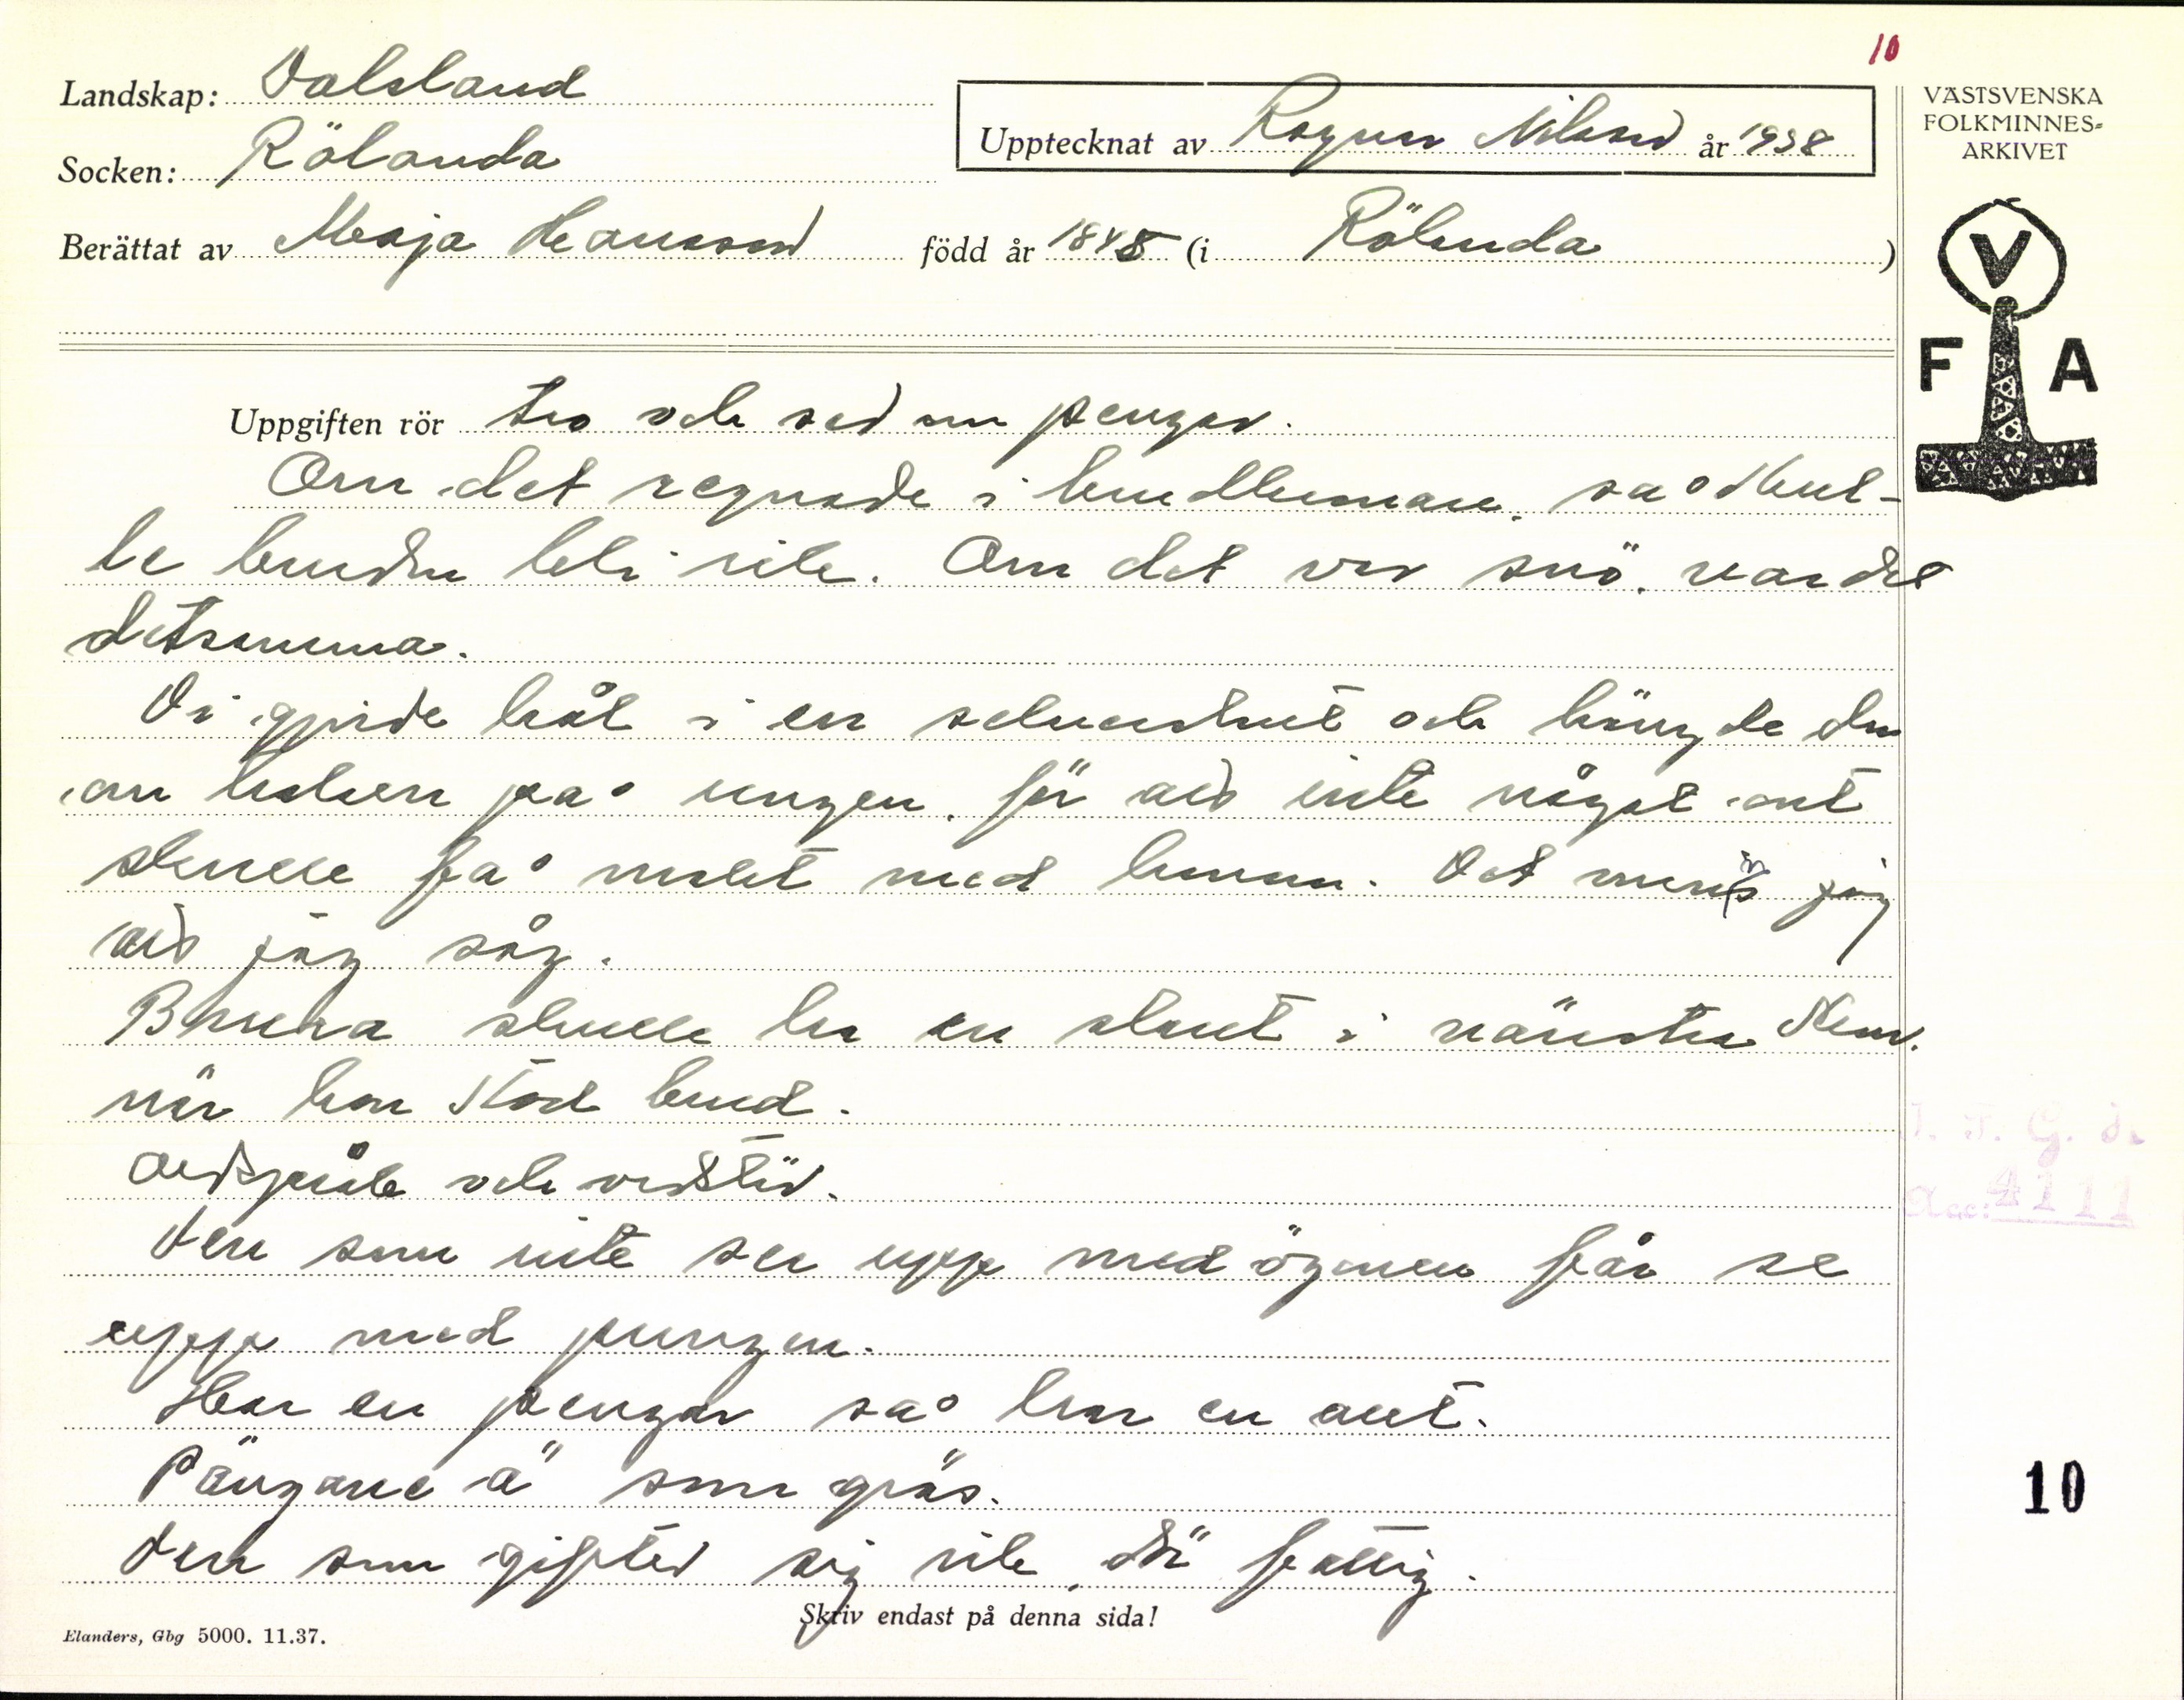 10
Landskap: Dalsland
Socken: Rölanda
Upptecknat av Ragnar Nilsson år 1938
Berättat av Maja Hansson född år 1845 (i Rölanda)
VÄSTSVENSKA
FOLKMINNES=
ARKIVET
V
F A
Uppgiften rör tro och sed om pengar.
Om det regnade i brudkronan, så skul-
le bruden bli rik. Om det var snö, var det
detsamma.
Vi gjorde hål i en silverslant och hängde den
om halsen på ungen, för att inte något ont
skulle få makt med honom. Det minns jag
att jag såg.
Bruna skulle ha en slant i vänstra skon,
när hon stod brud.
Ordspråk och ordstäv.
Den som inte ser upp med ögonen får se
upp med pungen.
Har en pengar så har en allt.
Pängane ä som gräs.
Den som gifter sig rik, dör fattig.
Skriv endast på denna sida!
Elanders, Gbg 5000. 11.37.
I. F. G. H.
Acc: 4111
10